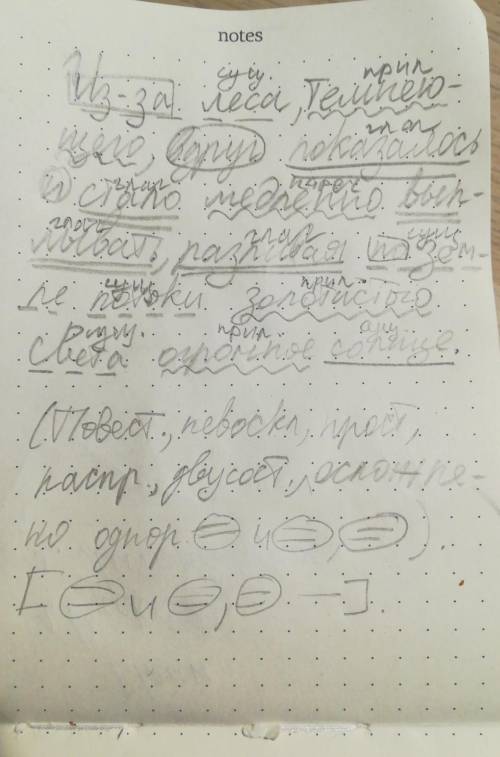 notes
сущ. прил
Из-за леса, темнею-
глаг
щего, вдруг показалось
глаг нареч
и стало медленно вып-
глаг глаг сущ
лывать, разливая по зем-
сущ. прил.
ле потоки золотистого
сущ. прил. сущ
света огромное солнце.
(Повест., невоскл, прост,
распр., двусост., осложне-
но однор и , ).
[ и , ].